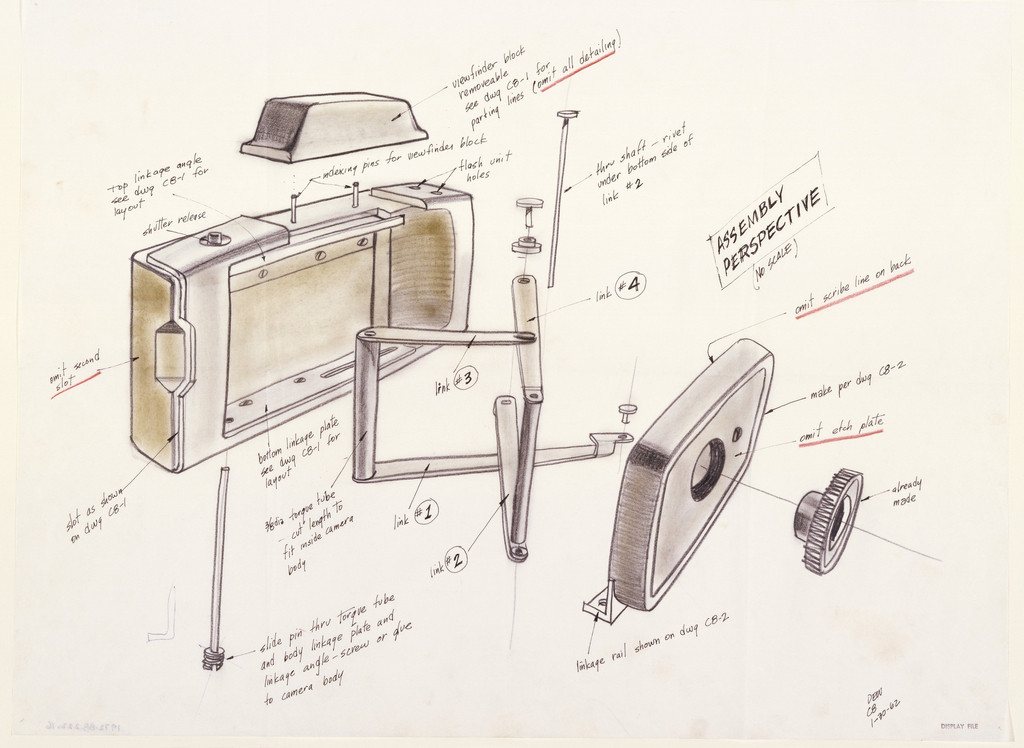 viewfinder block
removeable
see dwg CB-1 for
parting lines (omit all detailing)
top linkage angle
see dwg CB-1 for
layout
shutter release
indexing pins for viewfinder block
flash unit
holes
thru shaft - rivet
under bottom side of
link #2
ASSEMBLY
PERSPECTIVE
(NO SCALE)
link #4
omit scribe line on back
omit second
slot
link #3
make per dwg CB-2
omit etch plate
bottom linkage plate
see dwg CB-1 for
layout
slot as shown
on dwg CB-1
3/8 dia torque tube
- cut length to
fit inside camera
body
link #1
already
made
link #2
slide pin thru torque tube
and body linkage plate and
linkage angle - screw or glue
to camera body
linkage rail shown on dwg CB-2
CB
1-30-62
DISPLAY FILE